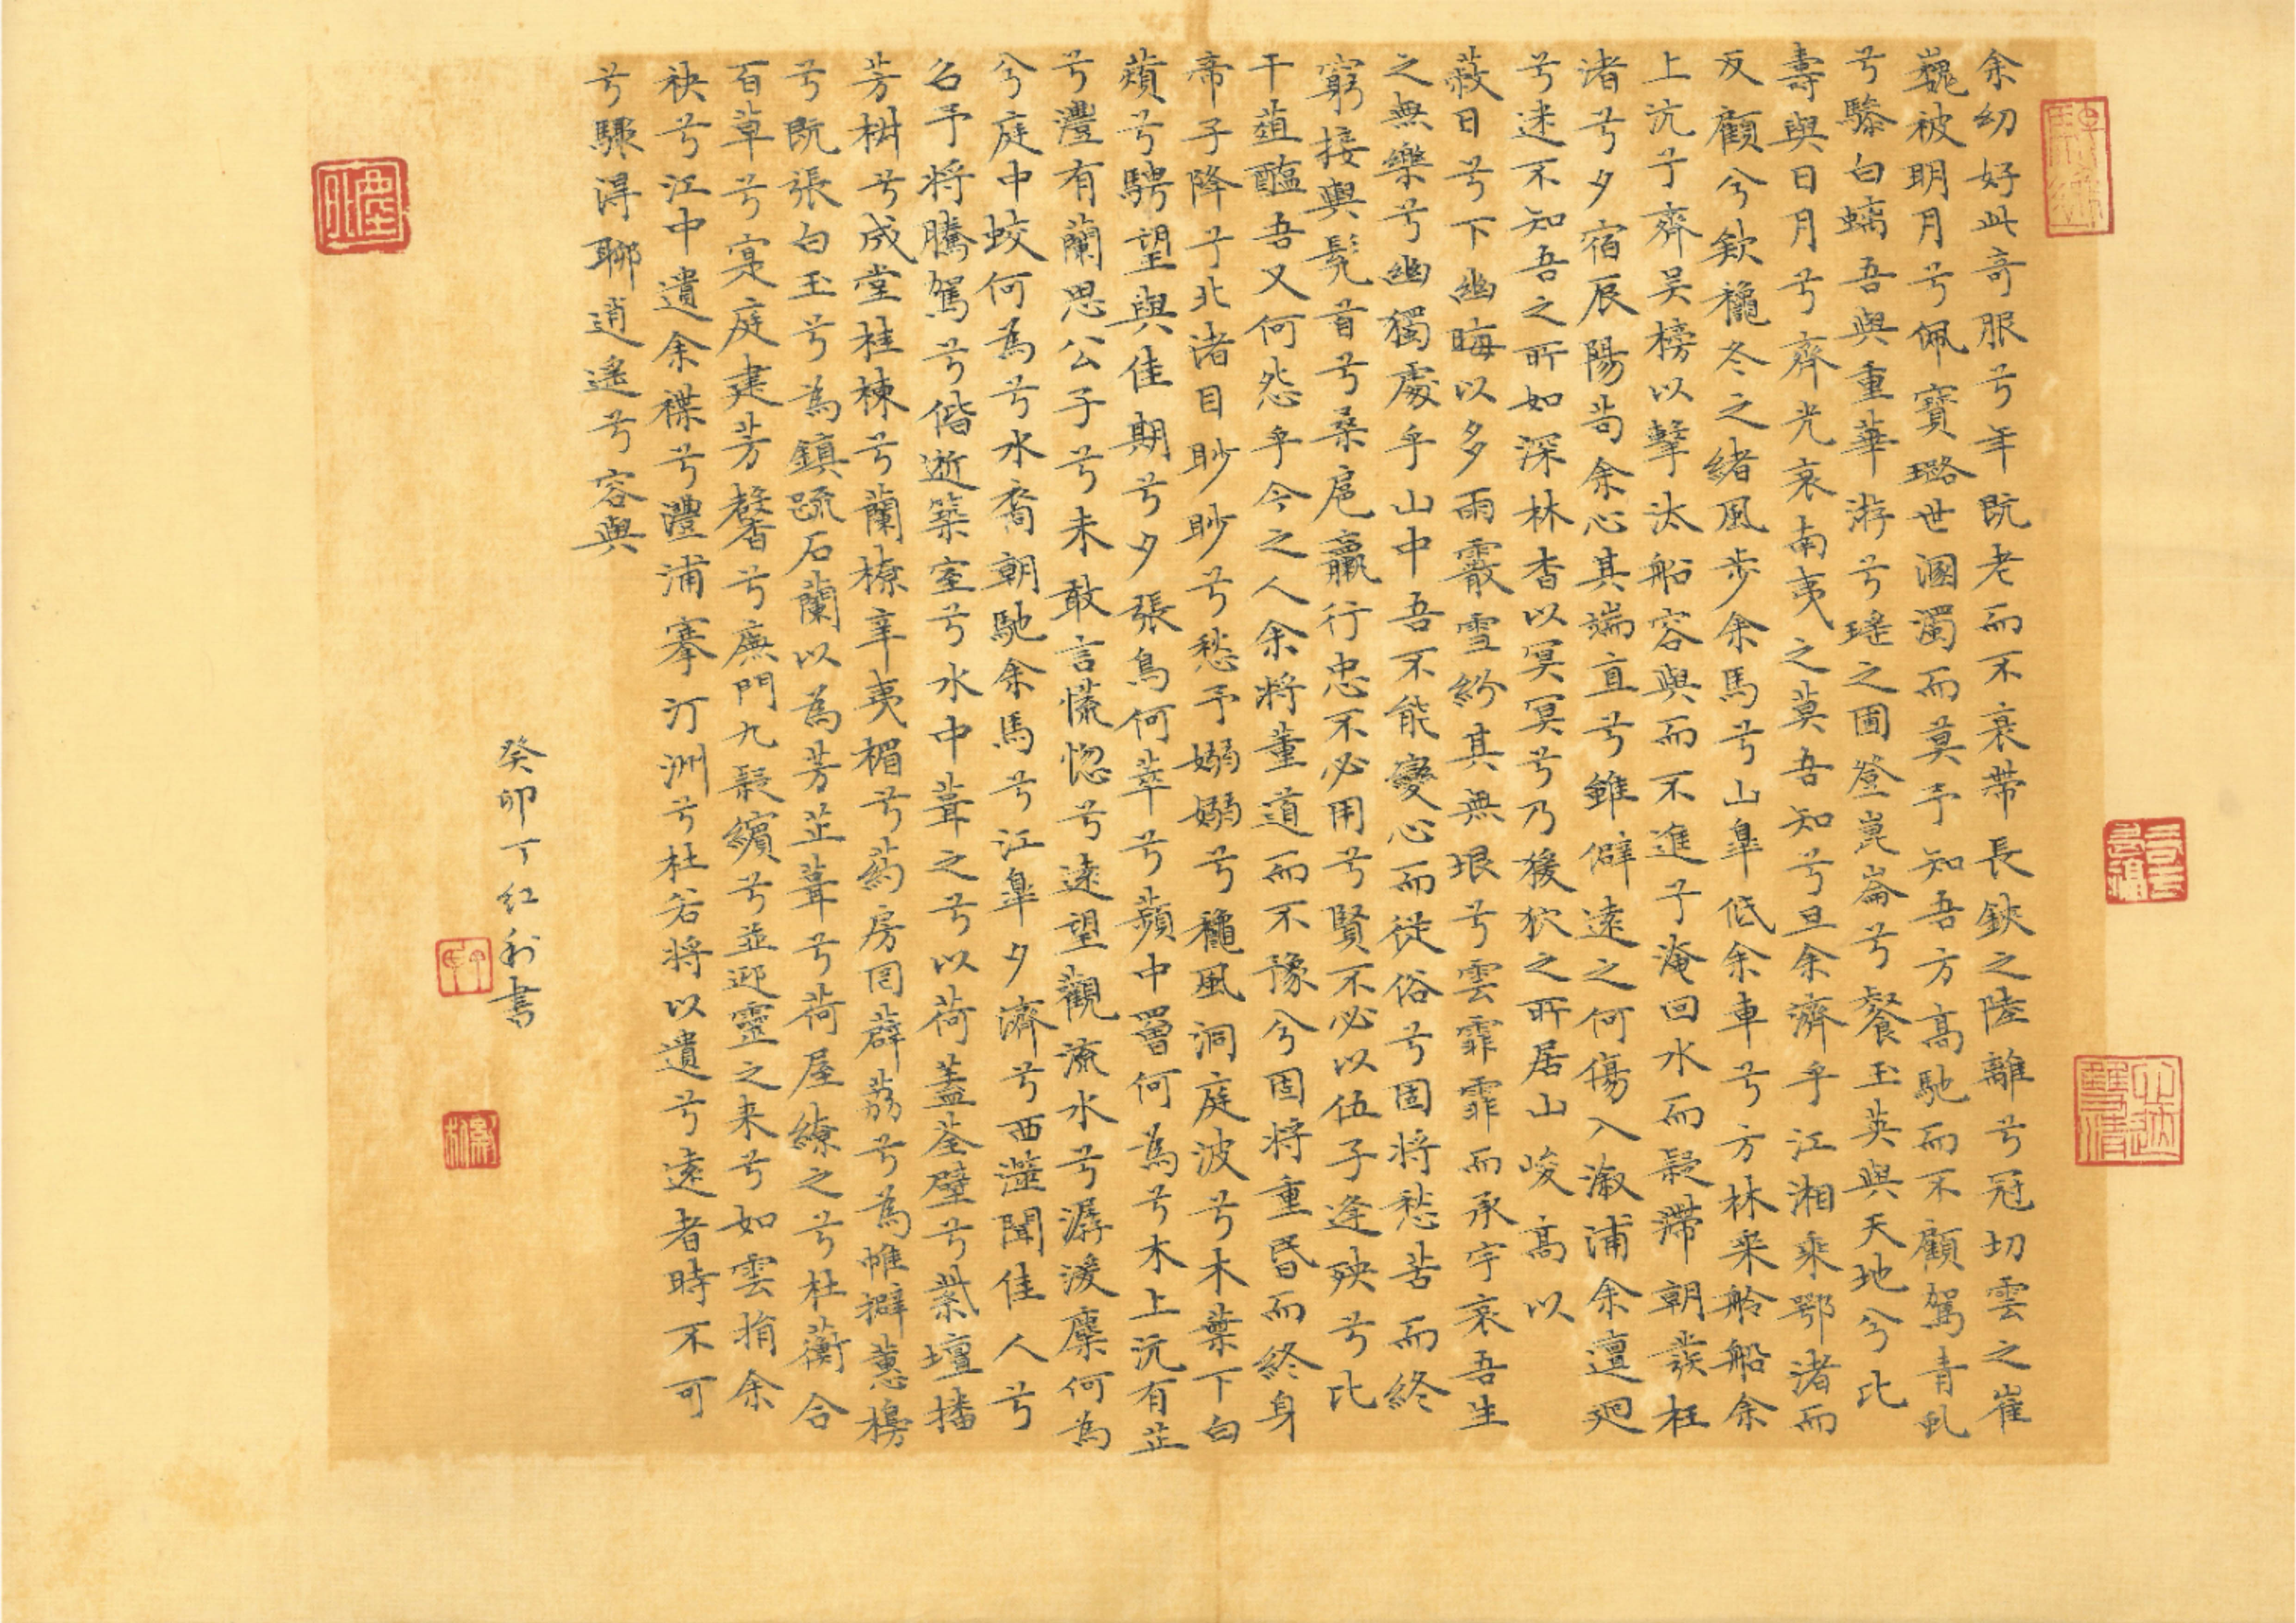 余幼好此奇服兮年既老而不衰帶長鋏之陸離兮冠切雲之崔
巍被明月兮佩寶璐世溷濁而莫予知吾方高馳而不顧駕青虬
兮驂白螭吾與重華游兮瑤之圃登崑崙兮餐玉英與天地兮比
壽與日月兮齊光哀南夷之莫吾知兮旦余濟乎江湘乘鄂渚而
反顧兮欸穐冬之緒風步余馬兮山皋低余車兮方林乘舲船余
上沅兮齊吳榜以擊汰船容與而不進兮淹回水而疑滯朝發枉
渚兮夕宿辰陽苟余心其端直兮雖僻遠之何傷入溆浦余邅迴
兮迷不知吾之所如深林杳以冥冥兮乃猨狖之所居山峻高以
蔽日兮下幽晦以多雨霰雪紛其無垠兮雲霏霏而承宇哀吾生
之無樂兮幽獨處乎山中吾不能變心而從俗兮固將愁苦而終
窮接輿髡首兮桑扈臝行忠不必用兮賢不必以伍子逢殃兮比
干菹醢吾又何怨乎今之人余將董道而不豫兮固將重昏而終身
帝子降兮北渚目眇眇兮愁予嫋嫋兮穐風洞庭波兮木葉下白
薠兮騁望與佳期兮夕張鳥何萃兮蘋中罾何為兮木上沅有芷
兮澧有蘭思公子兮未敢言慌惚兮遠望觀流水兮潺湲麋何為
兮庭中蛟何為兮水裔朝馳余馬兮江皋夕濟兮西澨聞佳人兮
召予將騰駕兮偕逝築室兮水中葺之兮以荷蓋荃壁兮紫壇播
芳椒兮成堂桂棟兮蘭橑辛夷楣兮葯房罔薜荔兮為帷擗蕙櫋
兮既張白玉兮為鎮疏石蘭以為芳芷葺兮荷屋繚之兮杜蘅合
百草兮寔庭建芳馨兮廡門九疑繽兮並迎靈之来兮如雲捐余
袂兮江中遺余褋兮澧浦搴汀洲兮杜若將以遺兮遠者時不可
兮驟得聊逍遙兮容與
癸卯丁红利書